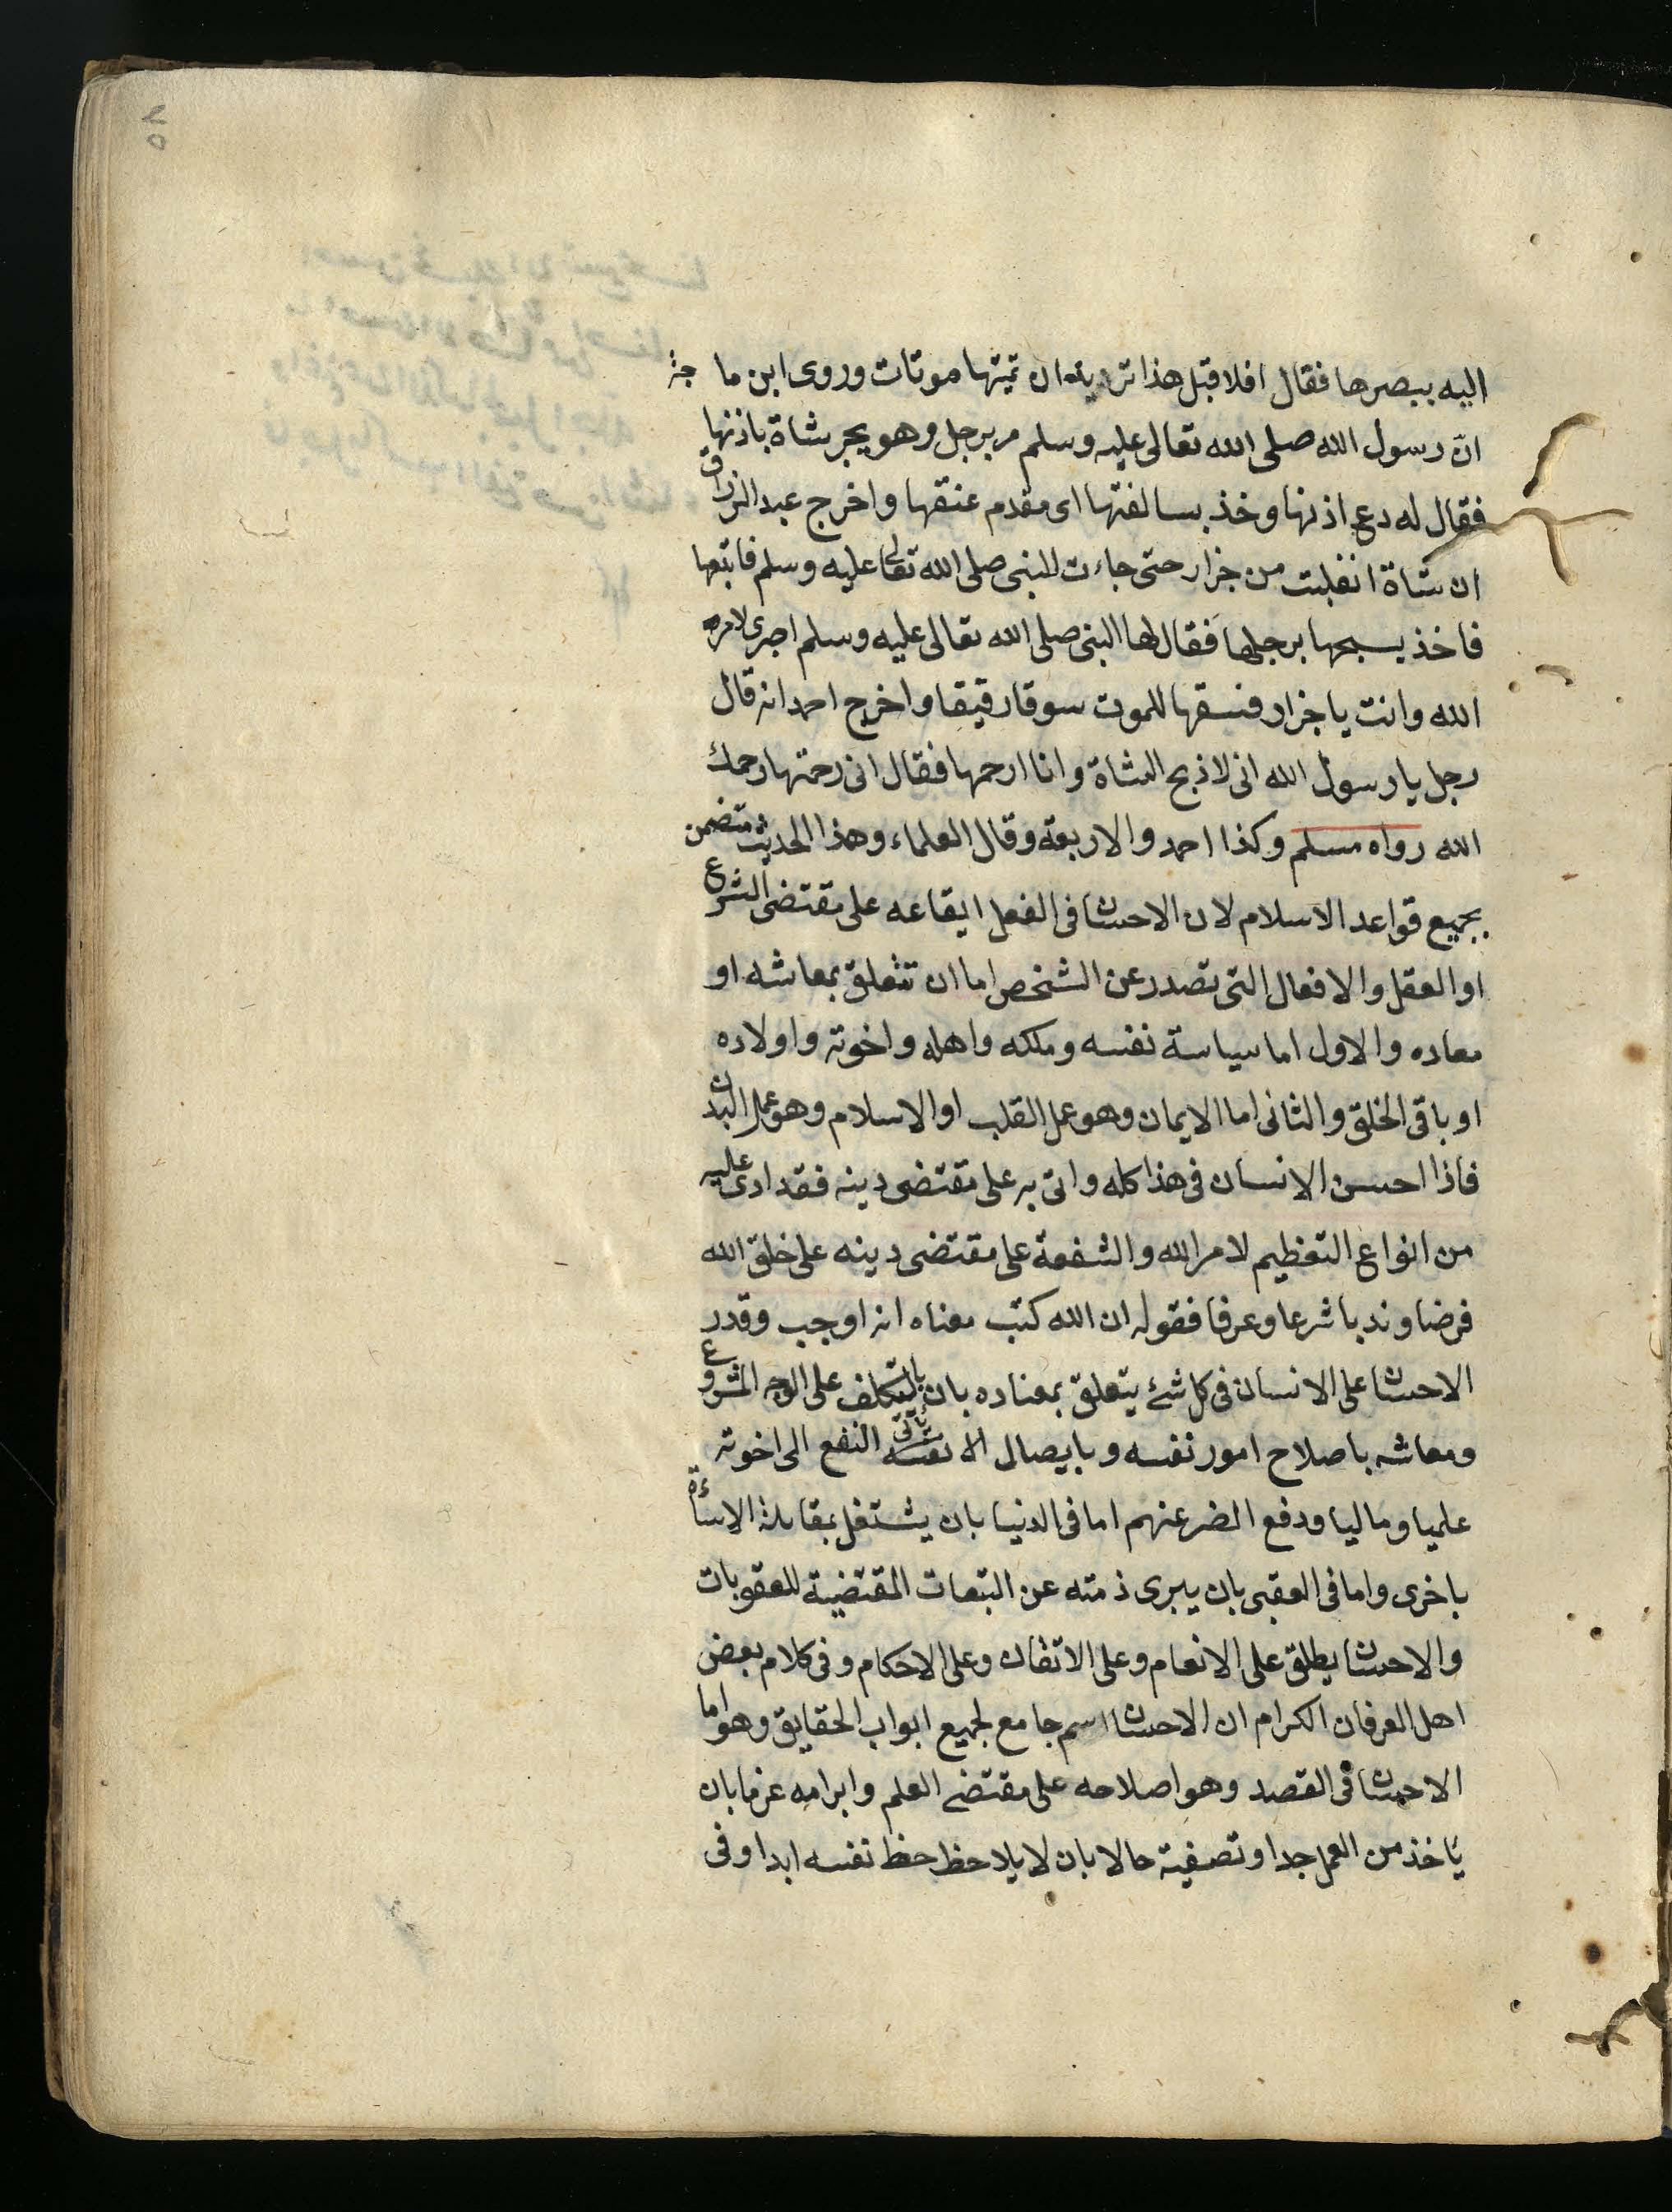 اليه ببصرها فقال افلا قبل هذا تريد ان تميتها موتات وروى ابن ماجه
انّ رسول الله صلى الله تعالى عليه وسلم مر برجل وهو يجر بشاة باذنها
فقال له دع اذنها وخذ بسالفتها اى مقدم عنقها واخرج عبد الرزاق
ان شاة انفلتت من جزار حتى جاءت للنبى صلى الله تعالى عليه وسلم فاتبعها
فاخذ يسحبها برجلها فقال لها النبى صلى الله تعالى عليه وسلم اصبرى لامر
الله وانت يا جزار فسقها للموت سوقا رقيقا واخرج احمد انه قال
رجل يا رسول الله انى لاذبح الشاة وانا ارحمها فقال انى رحمتها رحمك
الله رواه مسلم وكذا احمد والاربعة وقال العلماء وهذا الحديث متضمن
بجميع قواعد الاسلام لان الاحسان فى الفعل ايقاعه على مقتضى الشرع
او العقل والافعال التى تصدر عن الشخص اما ان تتعلق بمعاشه او
معاده والاول اما سياسة نفسه وملكه واهله واخوته واولاده
او باقى الخلق والثانى اما الايمان وهو عمل القلب او الاسلام وهو عمل البدن
فاذا احسن الانسان فى هذا كله واتى به على مقتضى دينه فقد ادى عليه
من انواع التعظيم لامر الله والشفعة على مقتضى دينه على خلق الله
فرضا وندبا شرعا وعرفا فقوله ان الله كتب معناه انه اوجب وقدر
الاحسان على الانسان فى كل شئ يتعلق بمعناده بان ياتى التكلف على الوجه المشروع
ومعاشه باصلاح امور نفسه وبايصال النفع الى اخوته
علميا وماليا ودفع الضر عنهم اما فى الدنيا بان يشتغل بمقابلة الاساءة
باخرى واما فى العقبى بان يبرى ذمته عن التبعات المقتضية للعقوبات
والاحسان يطلق على الانعام وعلى الاتقان وعلى الاحكام وفى كلام بعض
اهل العرفان الكرام ان الاحسان اسم جامع لجميع ابواب الحقايق وهو اما
الاحسان فى القصد وهو اصلاحه على مقتضى العلم وابرامه عزما بان
ياخذ من العمل جدا وتصفيته حالا بان لا يلاحظ حظ نفسه ابدا وفى